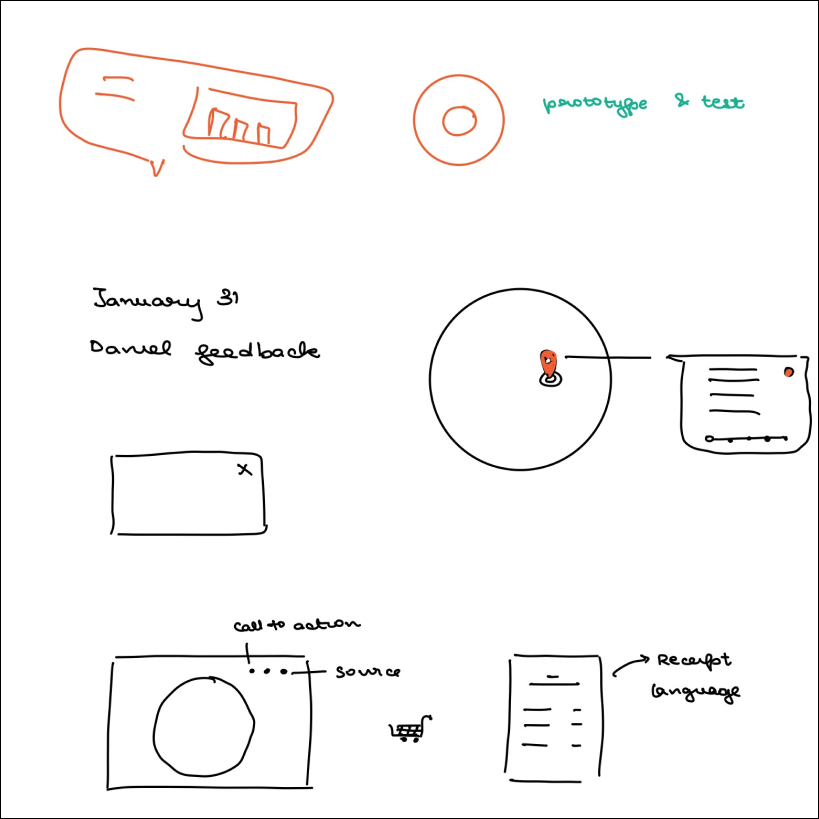 prototype & test
January 31
Daniel feedback
x
call to action
source
Receipt
language